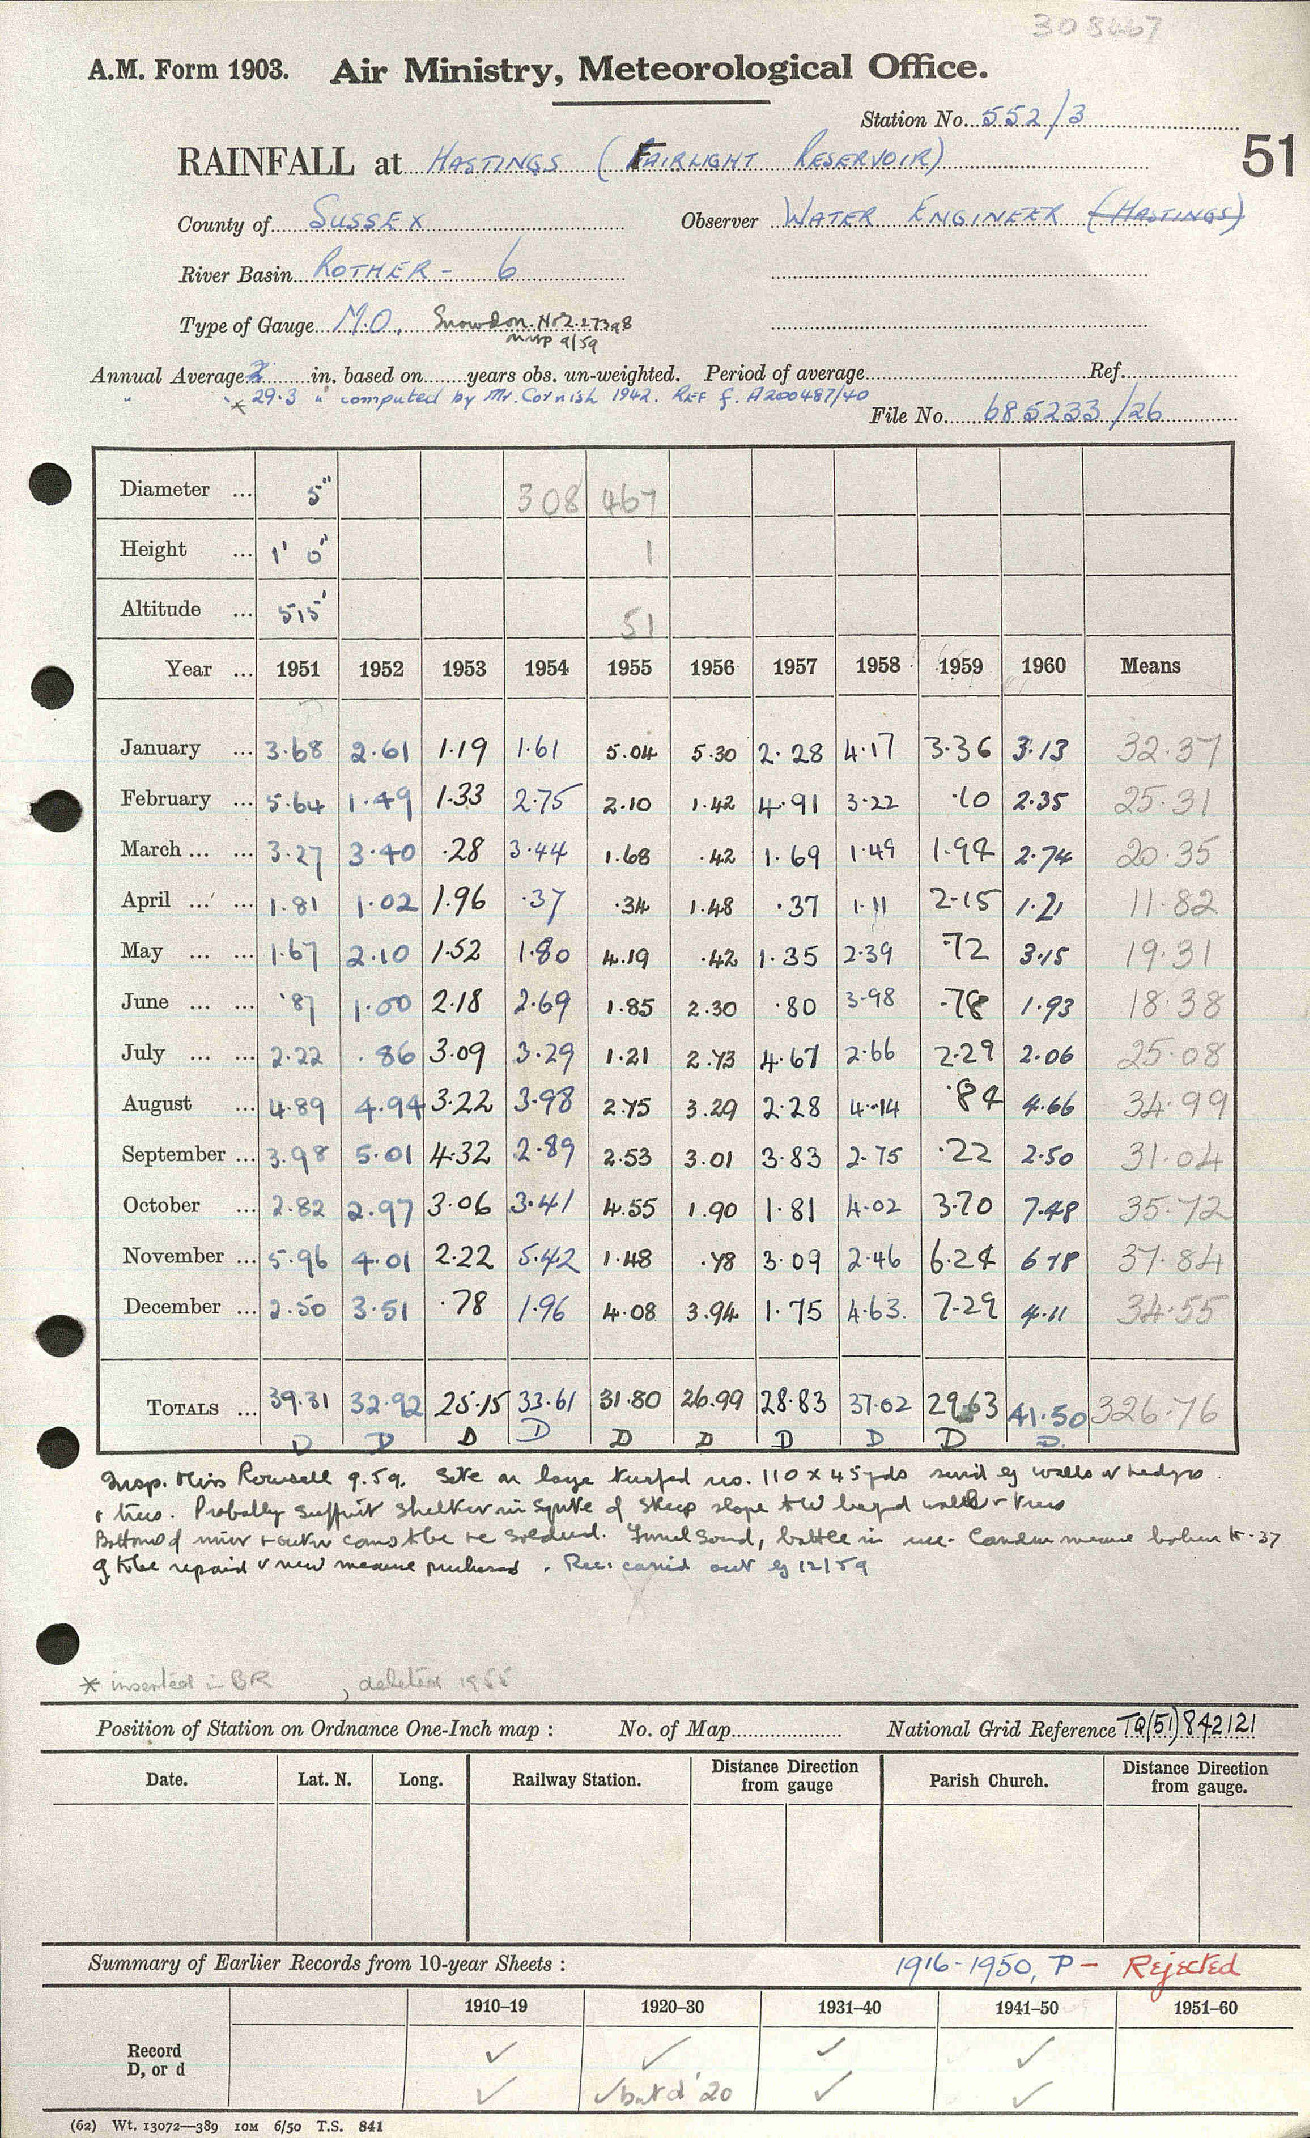 308467
A.M. Form 1903. Air Ministry, Meteorological Office.
Station No. 552/3
RAINFALL at HASTINGS (FAIRLIGHT RESERVOIR) 51
County of SUSSEX Observer WATER ENGINEER (HASTINGS)
River Basin ROTHER - 6
Type of Gauge M.O. Snowdon. No 2.27398
insp 9/59
Annual Average in. based on years obs. un-weighted. Period of average Ref.
" * 29.3 " computed by Mr. Cornish 1942. REF f. A200487/40
File No. 685233/26
Diameter ... 5" 308 467
Height ... 1' 0" 1
Altitude ... 515' 51
Year ... 1951 1952 1953 1954 1955 1956 1957 1958 1959 1960 Means
January ... 3.68 2.61 1.19 1.61 5.04 5.30 2.28 4.17 3.36 3.13 32.37
February ... 5.64 1.49 1.33 2.75 2.10 1.42 4.91 3.22 .10 2.35 25.31
March ... ... 3.27 3.40 .28 3.44 1.68 .42 1.69 1.49 1.94 2.74 20.35
April ... ... 1.81 1.02 1.96 .37 .34 1.48 .37 1.11 2.15 1.21 11.82
May ... ... 1.67 2.10 1.52 1.80 4.19 .42 1.35 2.39 .72 3.15 19.31
June ... ... .87 1.00 2.18 2.69 1.85 2.30 .80 3.98 .78 1.93 18.38
July ... ... 2.22 .86 3.09 3.29 1.21 2.73 4.67 2.66 2.29 2.06 25.08
August ... 4.89 4.94 3.22 3.98 2.75 3.29 2.28 4.14 .84 4.66 34.99
September ... 3.98 5.01 4.32 2.89 2.53 3.01 3.83 2.75 .22 2.50 31.04
October ... 2.82 2.97 3.06 3.41 4.55 1.90 1.81 4.02 3.70 7.48 35.72
November ... 5.96 4.01 2.22 5.42 1.48 .78 3.09 2.46 6.24 6.78 37.84
December ... 2.50 3.51 .78 1.96 4.08 3.94 1.75 4.63. 7.29 4.11 34.55
TOTALS ... 39.31 32.92 25.15 33.61 31.80 26.99 28.83 37.02 29.63 41.50 326.76
D D D D D D D D D D
Insp. Miss Rowsell 9.59. Site on large turfed res. 110 x 45 yds surrd by walls or hedges
+ trees. Probably suffict shelter in spite of steep slope to W beyond wall + trees
Bottom of inner + outer cans to be re soldered. Funnel sound, bottle in use.
to be repaired + new measure purchased. Rec: carried out by 12/59
* inserted in BR , deleted 1955
Position of Station on Ordnance One-Inch map : No. of Map National Grid Reference TQ(51)842121
Date. Lat. N. Long. Railway Station. Distance Direction from gauge Parish Church. Distance Direction from gauge.
Summary of Earlier Records from 10-year Sheets : 1916-1950, P - Rejected
1910–19 1920–30 1931–40 1941–50 1951–60
Record ✓ ✓ ✓ ✓
D, or d ✓ ✓ but d '20 ✓ ✓
(62) Wt. 13072—389 10M 6/50 T.S. 841